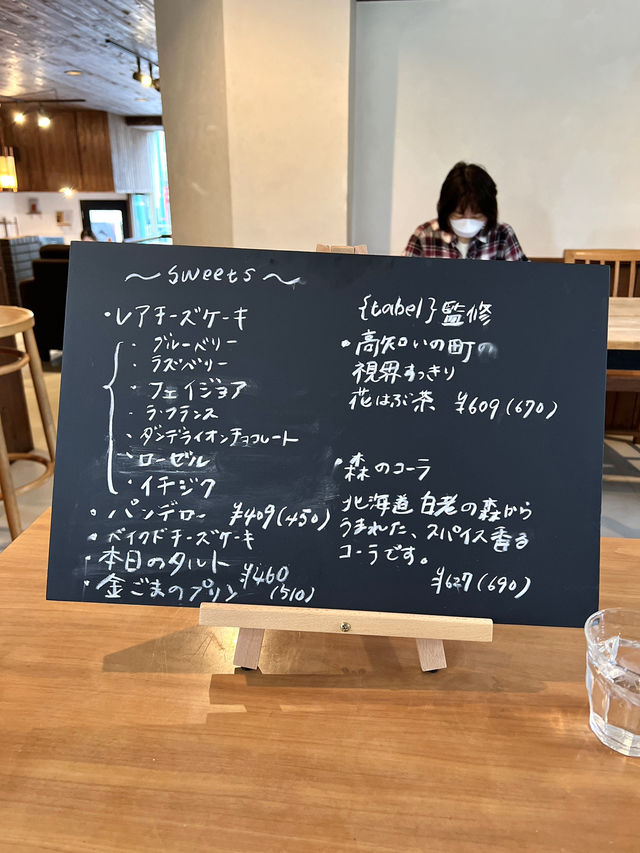 ～sweets～
・レアチーズケーキ
・ブルーベリー
・ラズベリー
・フェイジョア
・ラ・フランス
・ダンデライオンチョコレート
・ローゼル
・イチジク
・パンデロー ¥409(450)
・ベイクドチーズケーキ
・本日のタルト
・金ごまのプリン ¥460
(510)
{tabel}監修
・高知いの町の
視界すっきり
花はぶ茶 ¥609(670)
・森のコーラ
北海道白老の森から
うまれた、スパイス香る
コーラです。
¥627(690)